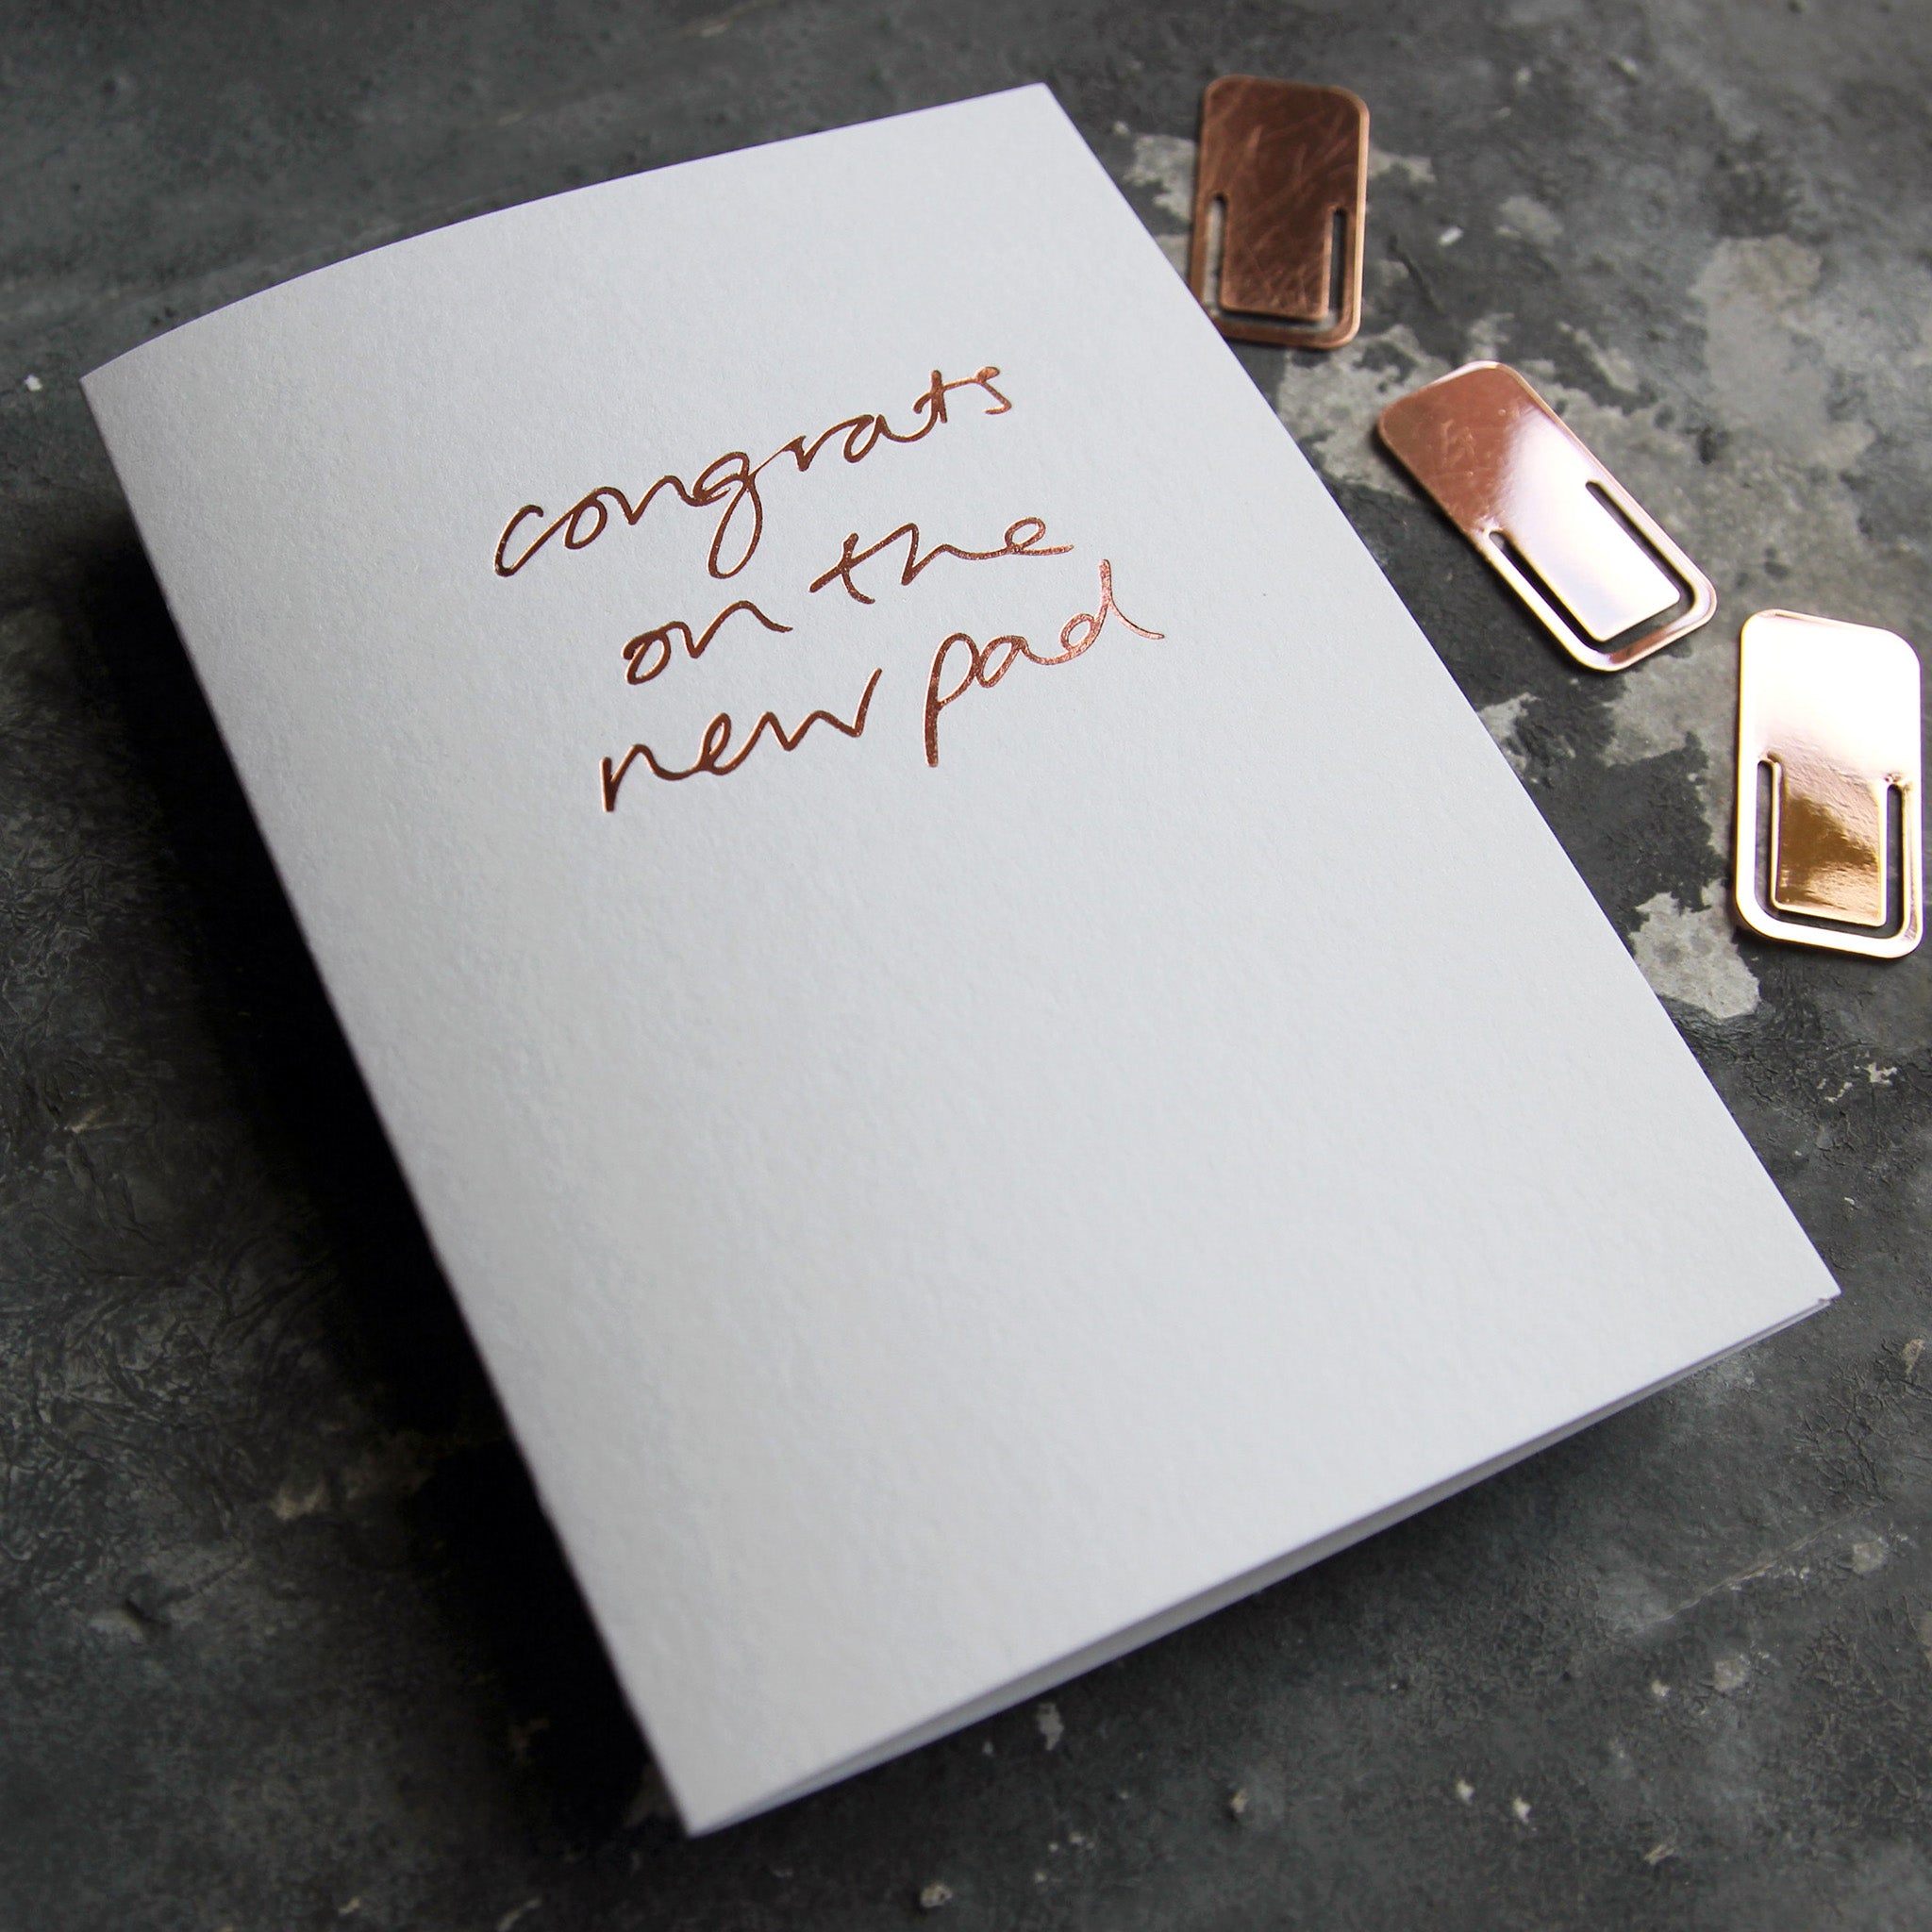 congrats
on the
new pad